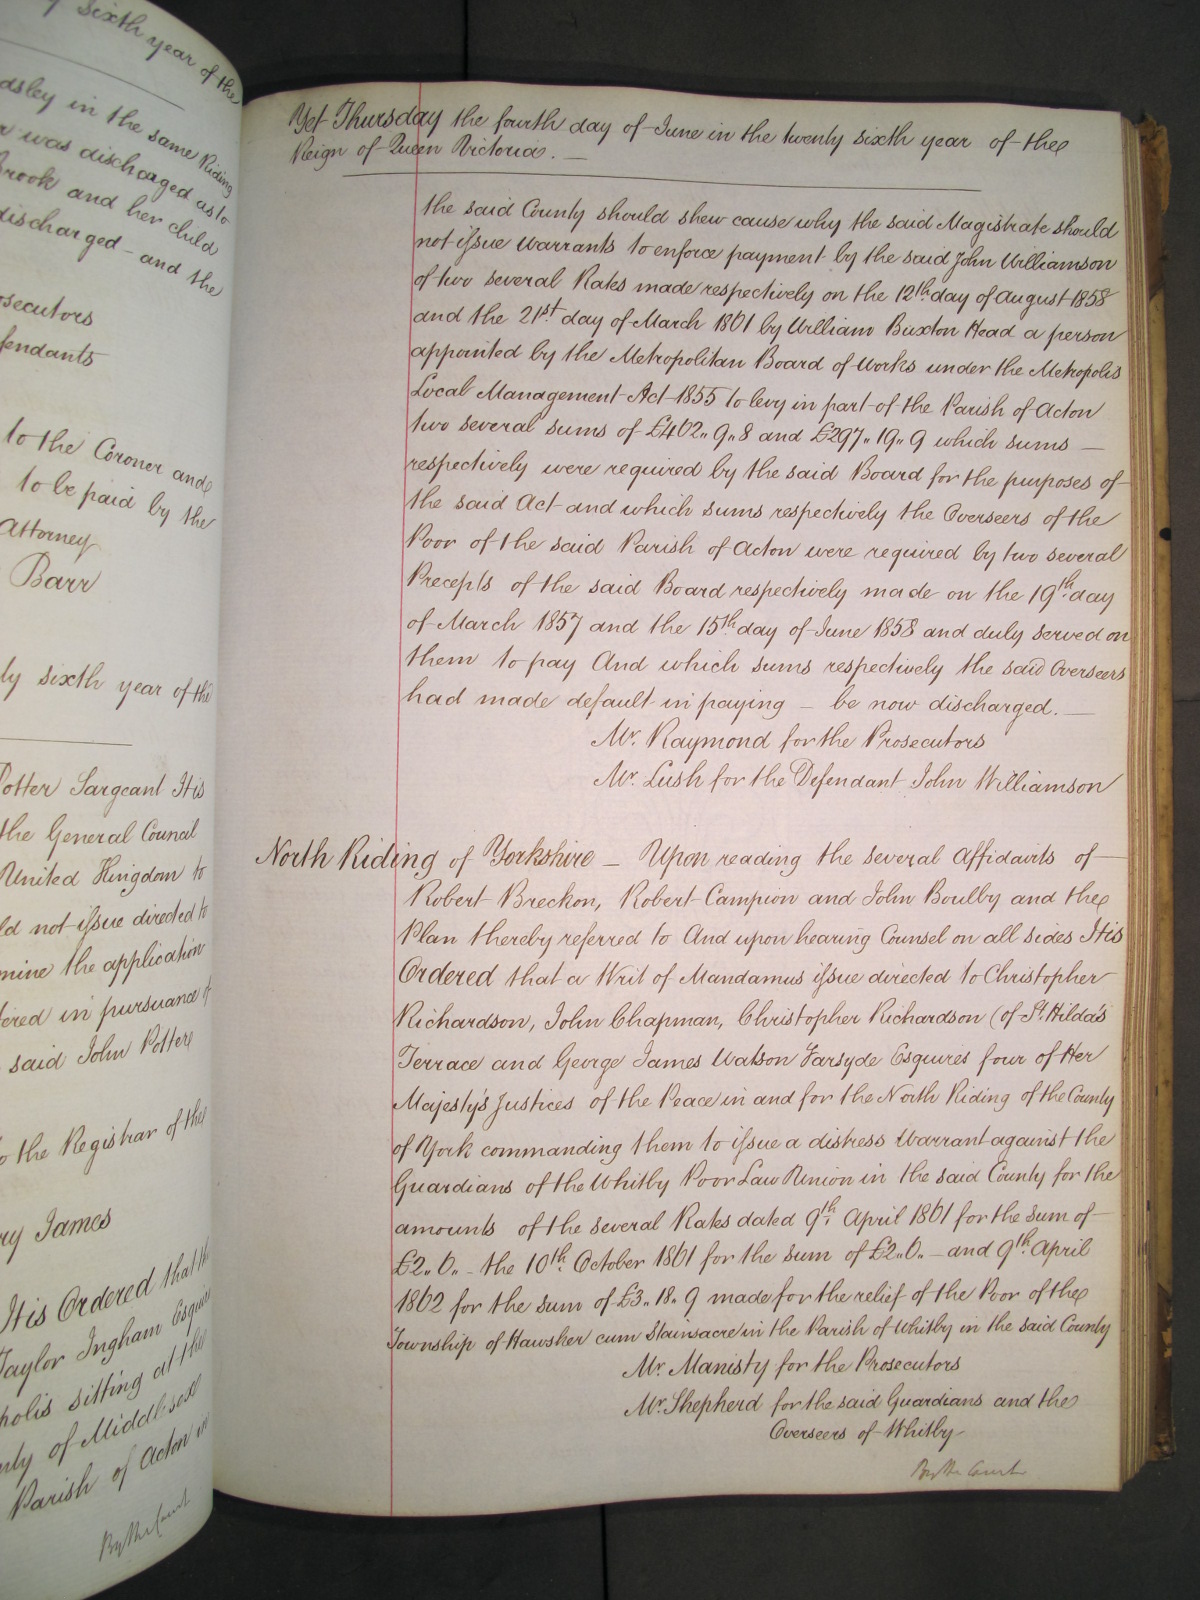 sixth year of the
in the same Riding
was discharged as to
Brook and her child
discharged - and the
to the Coroner and
to be paid by the
Attorney
Barr
sixth year of the
Potter Sargeant It is
the General Council
United Kingdom to
not issue directed to
the application
in pursuance of
said John Potter
to the Registrar of the
James
It is Ordered that the
Taylor Ingham Esquire
sitting at the
of Middlesex
Parish of Acton in
By the Court
Yet Thursday the fourth day of June in the twenty sixth year of the
Reign of Queen Victoria. —
the said County should shew cause why the said Magistrate should
not issue warrants to enforce payment by the said John Williamson
of two several Rates made respectively on the 12th day of August 1858
and the 21st day of March 1861 by William Buxton Head a person
appointed by the Metropolitan Board of Works under the Metropolis
Local Management Act 1855 to levy in part of the Parish of Acton
two several sums of £462„ 9„ 8 and £297„ 19„ 9 which sums —
respectively were required by the said Board for the purposes of
the said Act and which sums respectively the Overseers of the
Poor of the said Parish of Acton were required by two several
Precepts of the said Board respectively made on the 19th day
of March 1857 and the 15th day of June 1858 and duly served on
them to pay And which sums respectively the said Overseers
had made default in paying — be now discharged. —
Mr. Raymond for the Prosecutors
Mr. Lush for the Defendant John Williamson
North Riding of Yorkshire — Upon reading the several Affidavits of
Robert Breckon, Robert Campion and John Boulby and the
Plan thereby referred to And upon hearing Counsel on all sides It is
Ordered that a Writ of Mandamus issue directed to Christopher
Richardson, John Chapman, Christopher Richardson (of St. Hilda's
Terrace and George James Watson Farsyde Esquires four of Her
Majesty's Justices of the Peace in and for the North Riding of the County
of York commanding them to issue a distress Warrant against the
Guardians of the Whitby Poor Law Union in the said County for the
amounts of the several Rates dated 9th April 1861 for the sum of
£2„ 0„ - the 10th October 1861 for the sum of £2„ 0„ — and 9th April
1862 for the sum of £3„ 18„ 9 made for the relief of the Poor of the
Township of Hawsker cum Stainsacre in the Parish of Whitby in the said County
Mr. Manisty for the Prosecutors
Mr. Shepherd for the said Guardians and the
Overseers of Whitby
By the Court